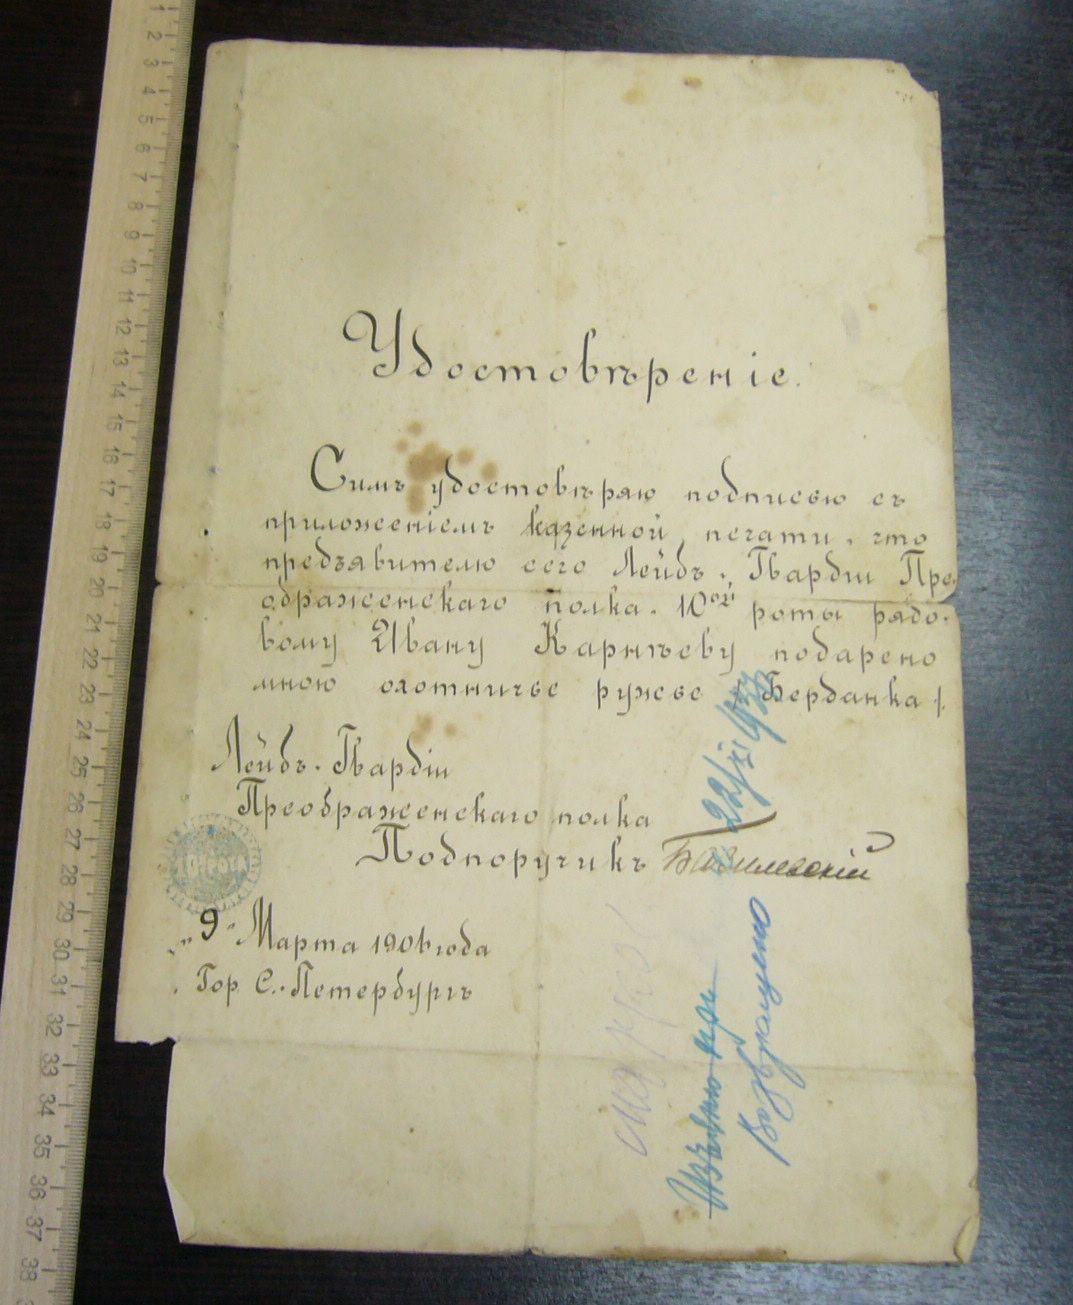 Удостовѣреніе.
Симъ удостовѣряю подписью съ
приложеніемъ казенной печати, что
предъявителю сего Лейбъ-Гвардіи Пре-
ображенскаго полка 10ой роты рядо-
вому Ивану Карпѣеву подарено
мною охотничье ружье /Берданка/.
Лейбъ-Гвардіи
Преображенскаго полка
Подпоручикъ
„9" Марта 1901 года
Гор. С.-Петербургъ
22/XI
Возвращено
1 2 3 4 5 6 7 8 9 10 11 12 13 14 15 16 17 18 19 20 21 22 23 24 25 26 27 28 29 30 31 32 33 34 35 36 37 38